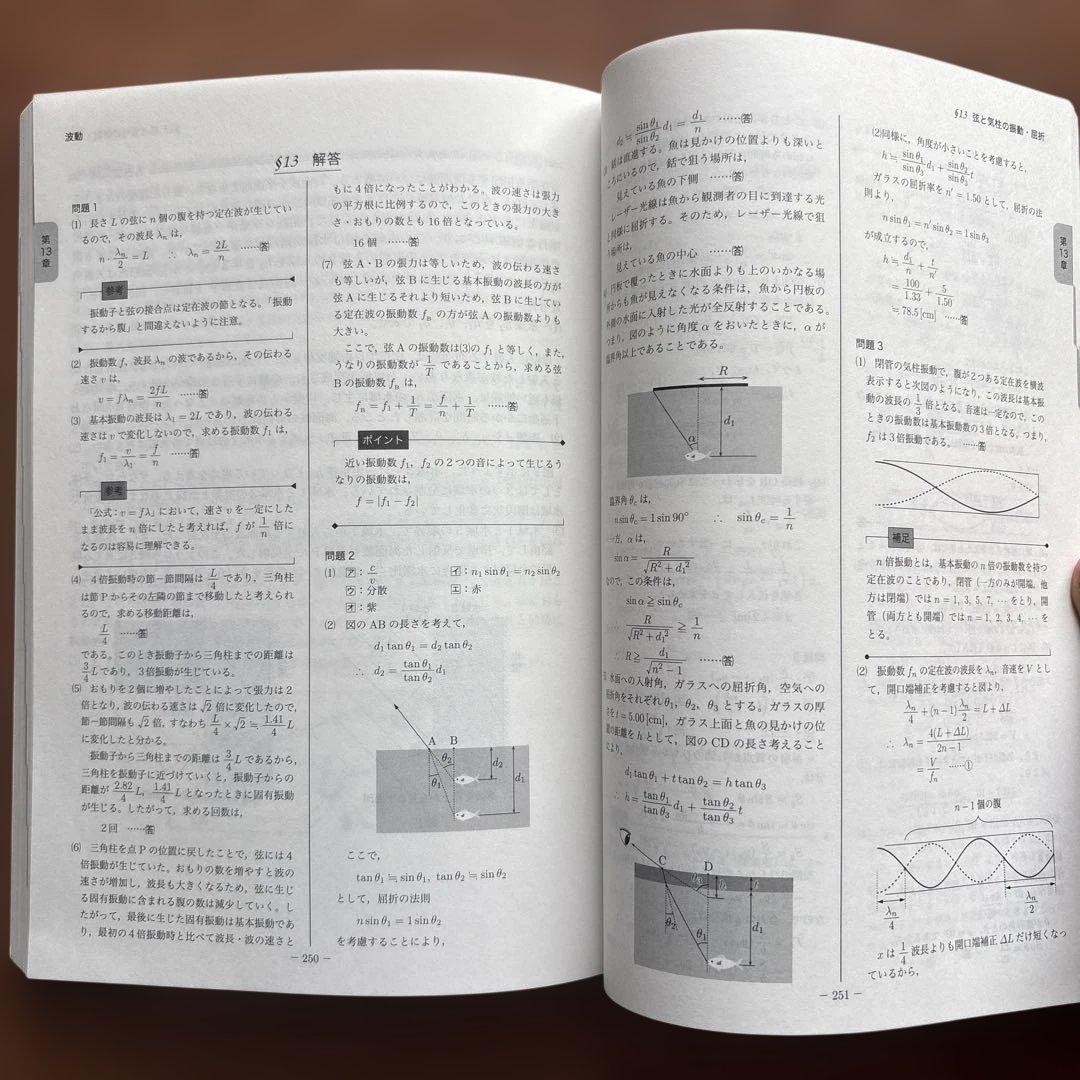 波動
§13 解答
第13章
問題1
(1) 長さLの弦にn個の腹を持つ定在波が生じてい
るので，その波長λnは，
n・λn/2 = L ∴ λn = 2L/n ……答
参考
振動子と弦の接合点は定在波の節となる。「振動
するから腹」と間違えないように注意。
(2) 振動数f，波長λnの波であるから，その伝わる
速さvは，
v = fλn = 2fL/n ……答
(3) 基本振動の波長はλ1 = 2Lであり，波の伝わる
速さはvで変化しないので，求める振動数f1は，
f1 = v/λ1 = f/n ……答
参考
「公式：v = fλ」において，速さvを一定にした
まま波長をn倍にしたと考えれば，fが1/n倍に
なるのは容易に理解できる。
(4) 4倍振動時の節−節間隔はL/4であり，三角柱
は節Pからその左隣の節まで移動したと考えられ
るので，求める移動距離は，
L/4 ……答
である。このとき振動子から三角柱までの距離は
3/4Lであり，3倍振動が生じている。
(5) おもりを2個に増やしたことによって張力は2
倍となり，波の伝わる速さは√2倍に変化したので，
節−節間隔も√2倍，すなわちL/4×√2≒1.41/4L
に変化したと分かる。
振動子から三角柱までの距離は3/4Lであるから，
三角柱を振動子に近づけていくと，振動子からの
距離が2.82/4L，1.41/4Lとなったときに固有振動
が生じる。したがって，求める回数は，
2回 ……答
(6) 三角柱を点Pの位置に戻したことで，弦には4
倍振動が生じていた。おもりの数を増やすと波の
速さが増加し，波長も大きくなるため，弦に生じ
る固有振動に含まれる腹の数は減少していく。し
たがって，最後に生じた固有振動は基本振動であ
り，最初の4倍振動時と比べて波長・波の速さと
もに4倍になったことがわかる。波の速さは張力
の平方根に比例するので，このときの張力の大き
さ・おもりの数とも16倍となっている。
16個 ……答
(7) 弦A・Bの張力は等しいため，波の伝わる速さ
も等しいが，弦Bに生じる基本振動の波長の方が
弦Aに生じるそれより短いため，弦Bに生じてい
る定在波の振動数fBの方が弦Aの振動数よりも
大きい。
ここで，弦Aの振動数は(3)のf1と等しく，また，
うなりの振動数が1/Tであることから，求める弦
Bの振動数fBは，
fB = f1 + 1/T = f/n + 1/T ……答
ポイント
近い振動数f1，f2の2つの音によって生じるう
なりの振動数は，
f = |f1 − f2|
問題2
(1) ア：c/v イ：n1 sinθ1 = n2 sinθ2
ウ：分散 エ：赤
オ：紫
(2) 図のABの長さを考えて，
d1 tanθ1 = d2 tanθ2
∴ d2 = tanθ1/tanθ2 d1
A B
θ2 d2
θ1 d1
ここで，
tanθ1≒sinθ1，tanθ2≒sinθ2
として，屈折の法則
n sinθ1 = 1 sinθ2
を考慮することにより，
− 250 −
§13 弦と気柱の振動・屈折
d2≒sinθ1/sinθ2 d1 = d1/n ……答
は直進する。魚は見かけの位置よりも深いと
ころにいるので，銛で狙う場所は，
見えている魚の下側 ……答
レーザー光線は魚から観測者の目に到達する光
と同様に屈折する。そのため，レーザー光線で狙
う場所は，
見えている魚の中心 ……答
円板で覆ったときに水面よりも上のいかなる場
所からも魚が見えなくなる条件は，魚から円板の
外側の水面に入射した光が全反射することである。
つまり，図のように角度αをおいたときに，αが
臨界角以上であることである。
R
d1
α
臨界角θcは，
n sinθc = 1 sin90° ∴ sinθc = 1/n
一方，αは，
sinα = R/√(R²+d1²)
なので，この条件は，
sinα ≧ sinθc
∴ R/√(R²+d1²) ≧ 1/n
∴ R ≧ d1/√(n²−1) ……答
水面への入射角，ガラスへの屈折角，空気への
屈折角をそれぞれθ1，θ2，θ3とする。ガラスの厚
さをt = 5.00 [cm]，ガラス上面と魚の見かけの位
置の距離をhとして，図のCDの長さ考えること
により，
d1 tanθ1 + t tanθ2 = h tanθ3
∴ h = tanθ1/tanθ3 d1 + tanθ2/tanθ3 t
C D
θ3 t
θ2
θ1 d1
(2)同様に，角度が小さいことを考慮すると，
h≒sinθ1/sinθ3 d1 + sinθ2/sinθ3 t
ガラスの屈折率をn′ = 1.50として，屈折の法
則より，
n sinθ1 = n′ sinθ2 = 1 sinθ3
が成立するので，
h≒d1/n + t/n′
= 100/1.33 + 5/1.50
= 78.5 [cm] ……答
第13章
問題3
(1) 閉管の気柱振動で，腹が2つある定在波を横波
表示すると次図のようになり，この波長は基本振
動の波長の1/3倍となる。音速は一定なので，この
ときの振動数は基本振動数の3倍となる。つまり，
f2は3倍振動である。 ……答
補足
n倍振動とは，基本振動のn倍の振動数を持つ
定在波のことであり，閉管（一方のみが開端，他
方は閉端）ではn = 1, 3, 5, 7, …をとり，開
管（両方とも開端）ではn = 1, 2, 3, 4, …を
とる。
(2) 振動数fnの定在波の波長をλn，音速をVとし
て，開口端補正を考慮すると図より，
λn/4 + (n−1)λn/2 = L + ΔL
∴ λn = 4(L+ΔL)/(2n−1)
= V/fn ……①
n−1個の腹
λn/4 λn/2
xは1/4波長よりも開口端補正ΔLだけ短くなっ
ているから，
− 251 −